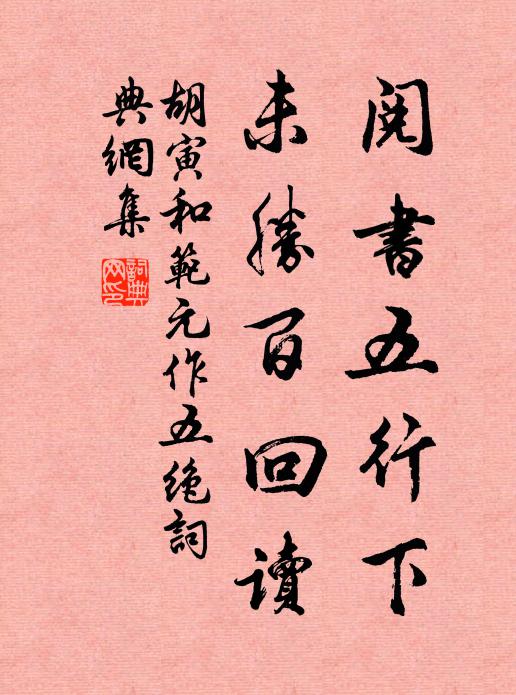 閱書五行下
未勝百回讀
胡寅和範元作五絕詞
典網集
詞典網印